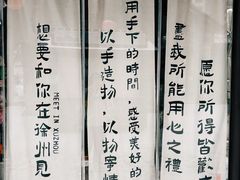 願你所得皆歡
盡我所能用心之禮
用手下的時間，感受美好的
以手造物，以物寄情
想要和你在徐州見
MEET IN XUZHOU